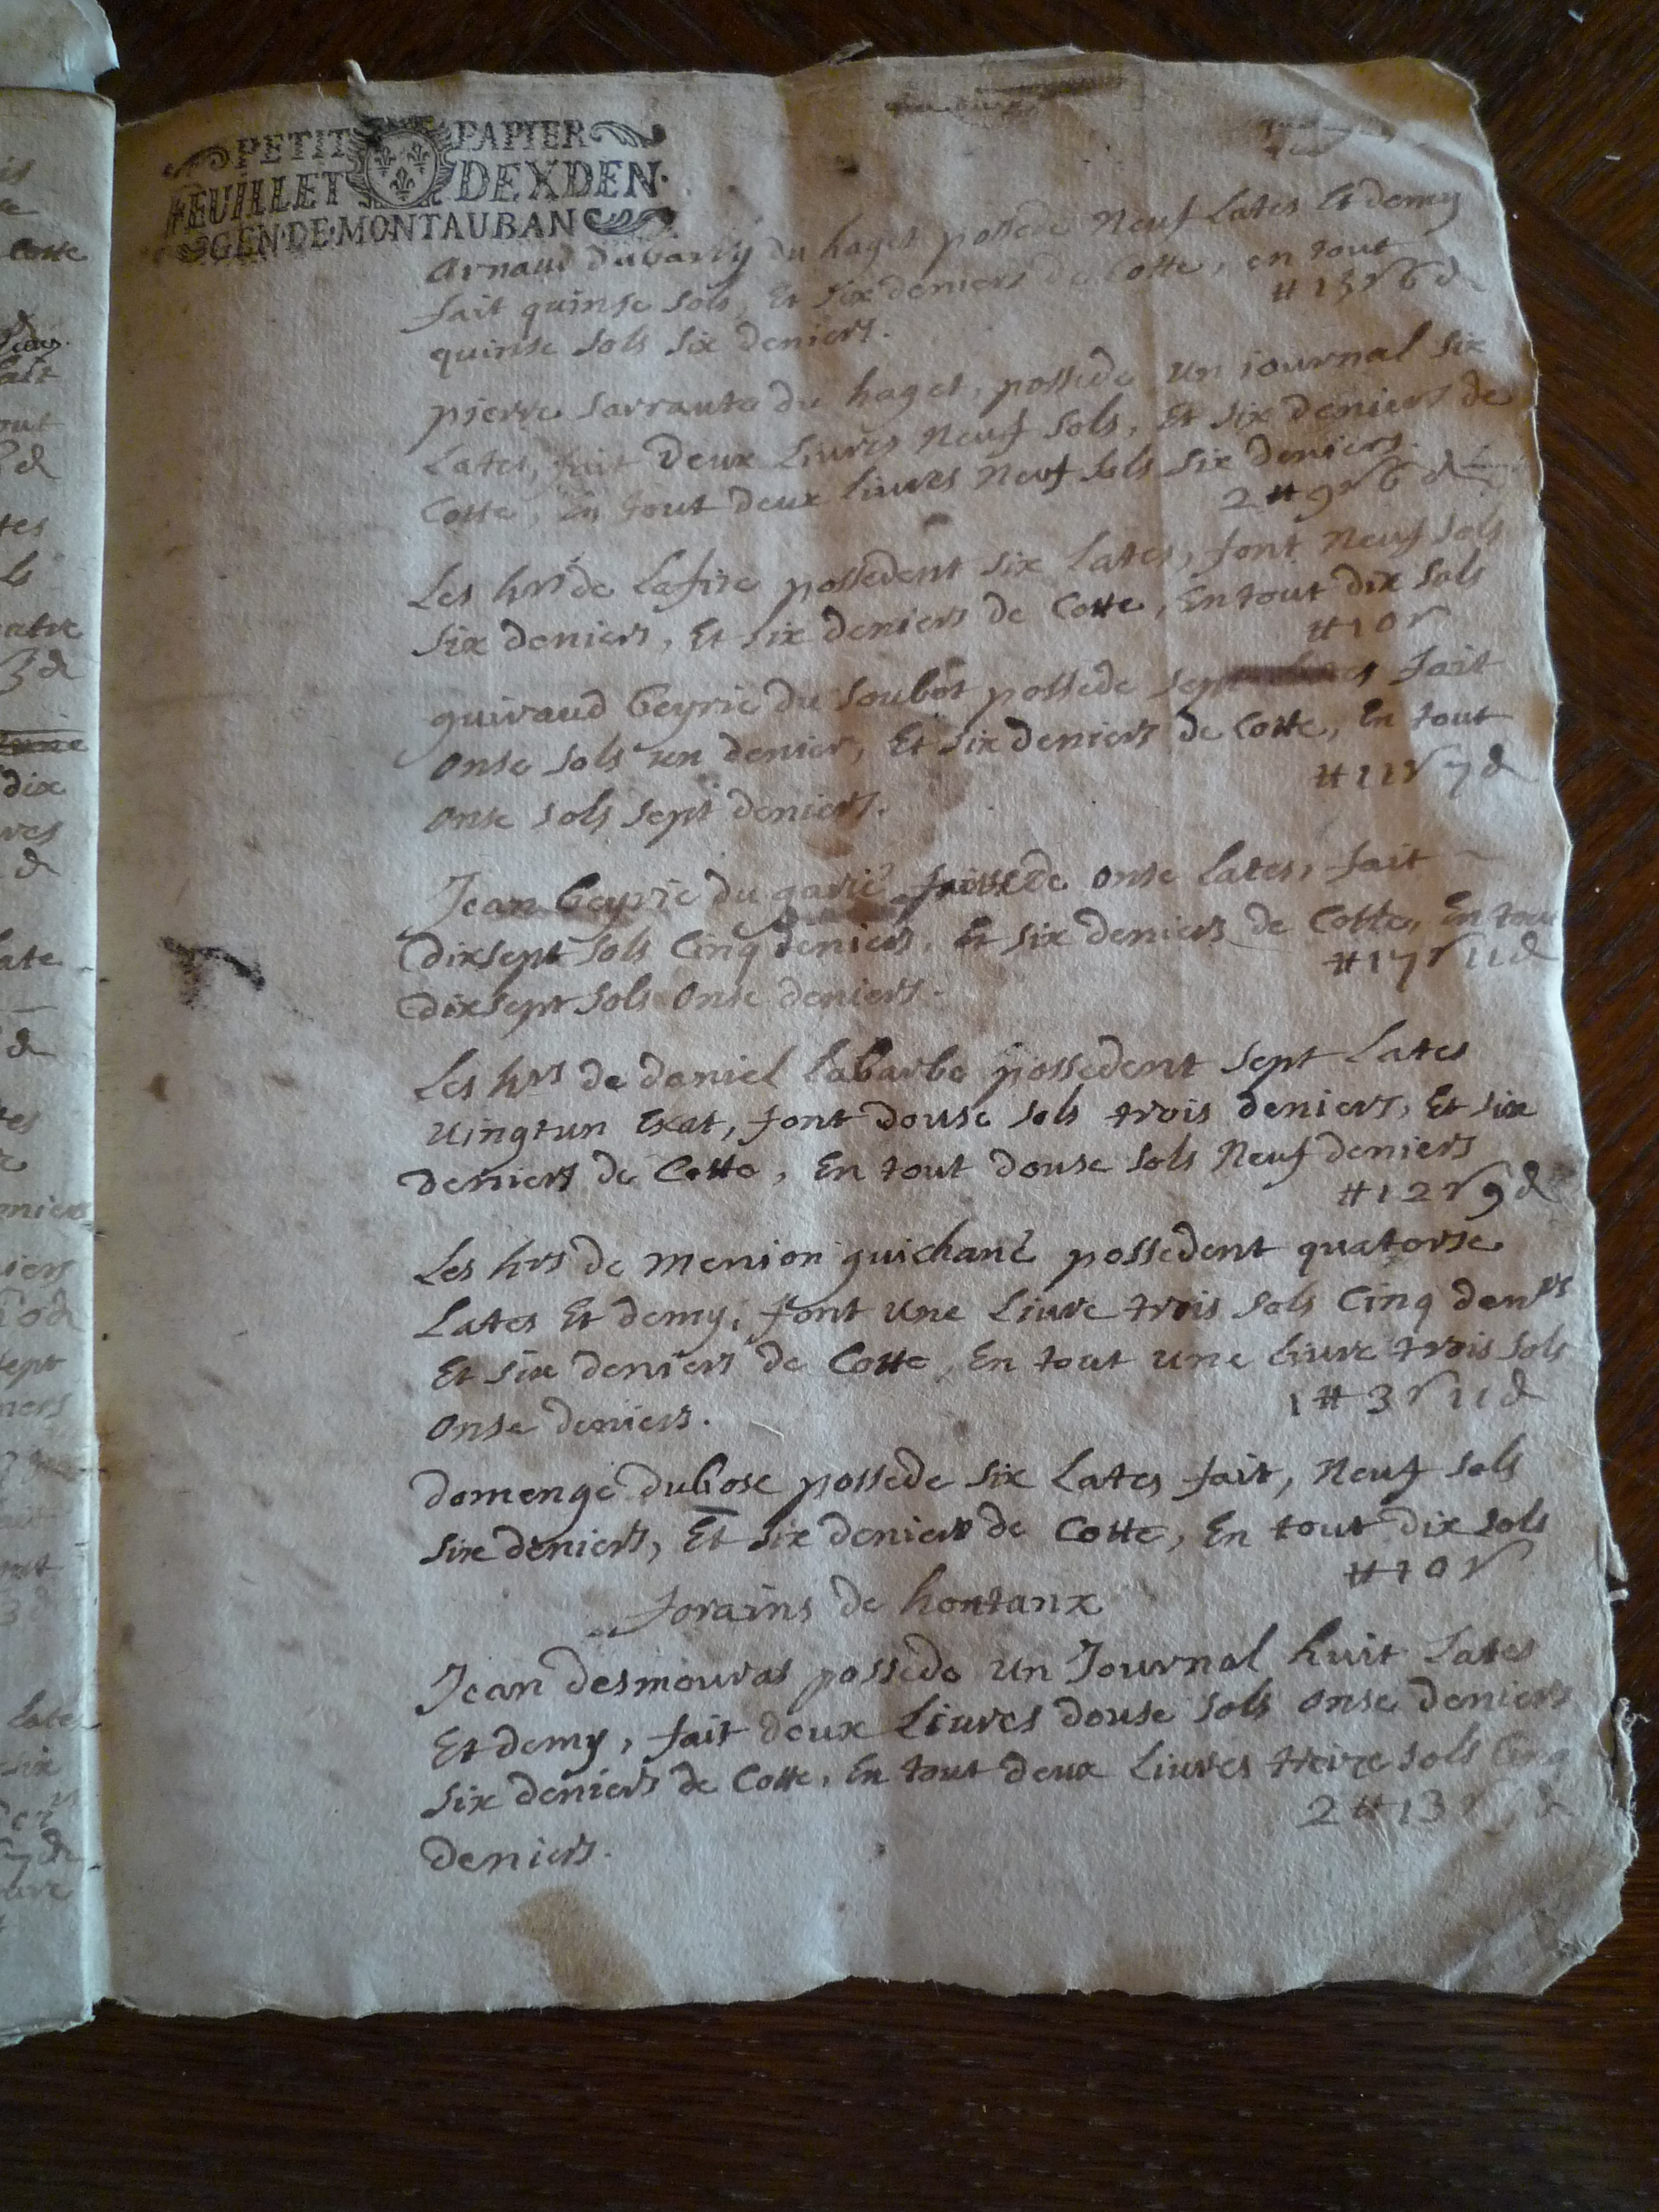 PETIT PAPIER
FEUILLET DEXDEN.
GEN·DE·MONTAUBAN
Arnaud dubarry du haget possede Neuf Lates Et demy
fait quinse sols, Et six deniers de Cotte, en tout
quinse sols six deniers.
# 15 s 6 d
pierre sarraute du haget, possede un iournal six
Lates, fait Deux Liures Neuf sols, Et six Deniers de
Cotte, En tout deux liures Neuf sols six deniers.
2 # 9 s 6 d
Les hrs de Lafite possedent six Lates, font Neuf sols
six deniers, Et six deniers de Cotte, En tout dix sols
# 10 s
guiraud beyrie du soubot possede sept fait
onse sols un denier, Et six deniers de Cotte, En tout
onse sols sept deniers.
# 11 s 7 d
Jean beyrie du onse Lates, fait
dixsept sols Cinq deniers, Et six deniers de Cotte, En tout
dixsept sols onse deniers.
# 17 s 11 d
Les hrs de daniel Labarbe possedent sept Lates
uingtun Exat, font douse sols trois deniers, Et six
deniers de Cotte, En tout douse sols Neuf deniers
# 12 s 9 d
Les hrs de menion guichané possedent quatorse
Lates Et demy, font une Liure trois sols Cinq denrs
Et six deniers de Cotte, En tout une Liure trois sols
onse deniers.
1 # 3 s 11 d
domenge dubosc possede six Lates fait, Neuf sols
six deniers, Et six deniers de Cotte, En tout dix sols
# 10 s
forains de hontanx
Jean desmouras possede un Journal huit Lates
Et demy, fait deux Liures douse sols onse deniers
six deniers de Cotte, En tout deux Liures treize sols Cinq
deniers.
2 # 13 s 5 d